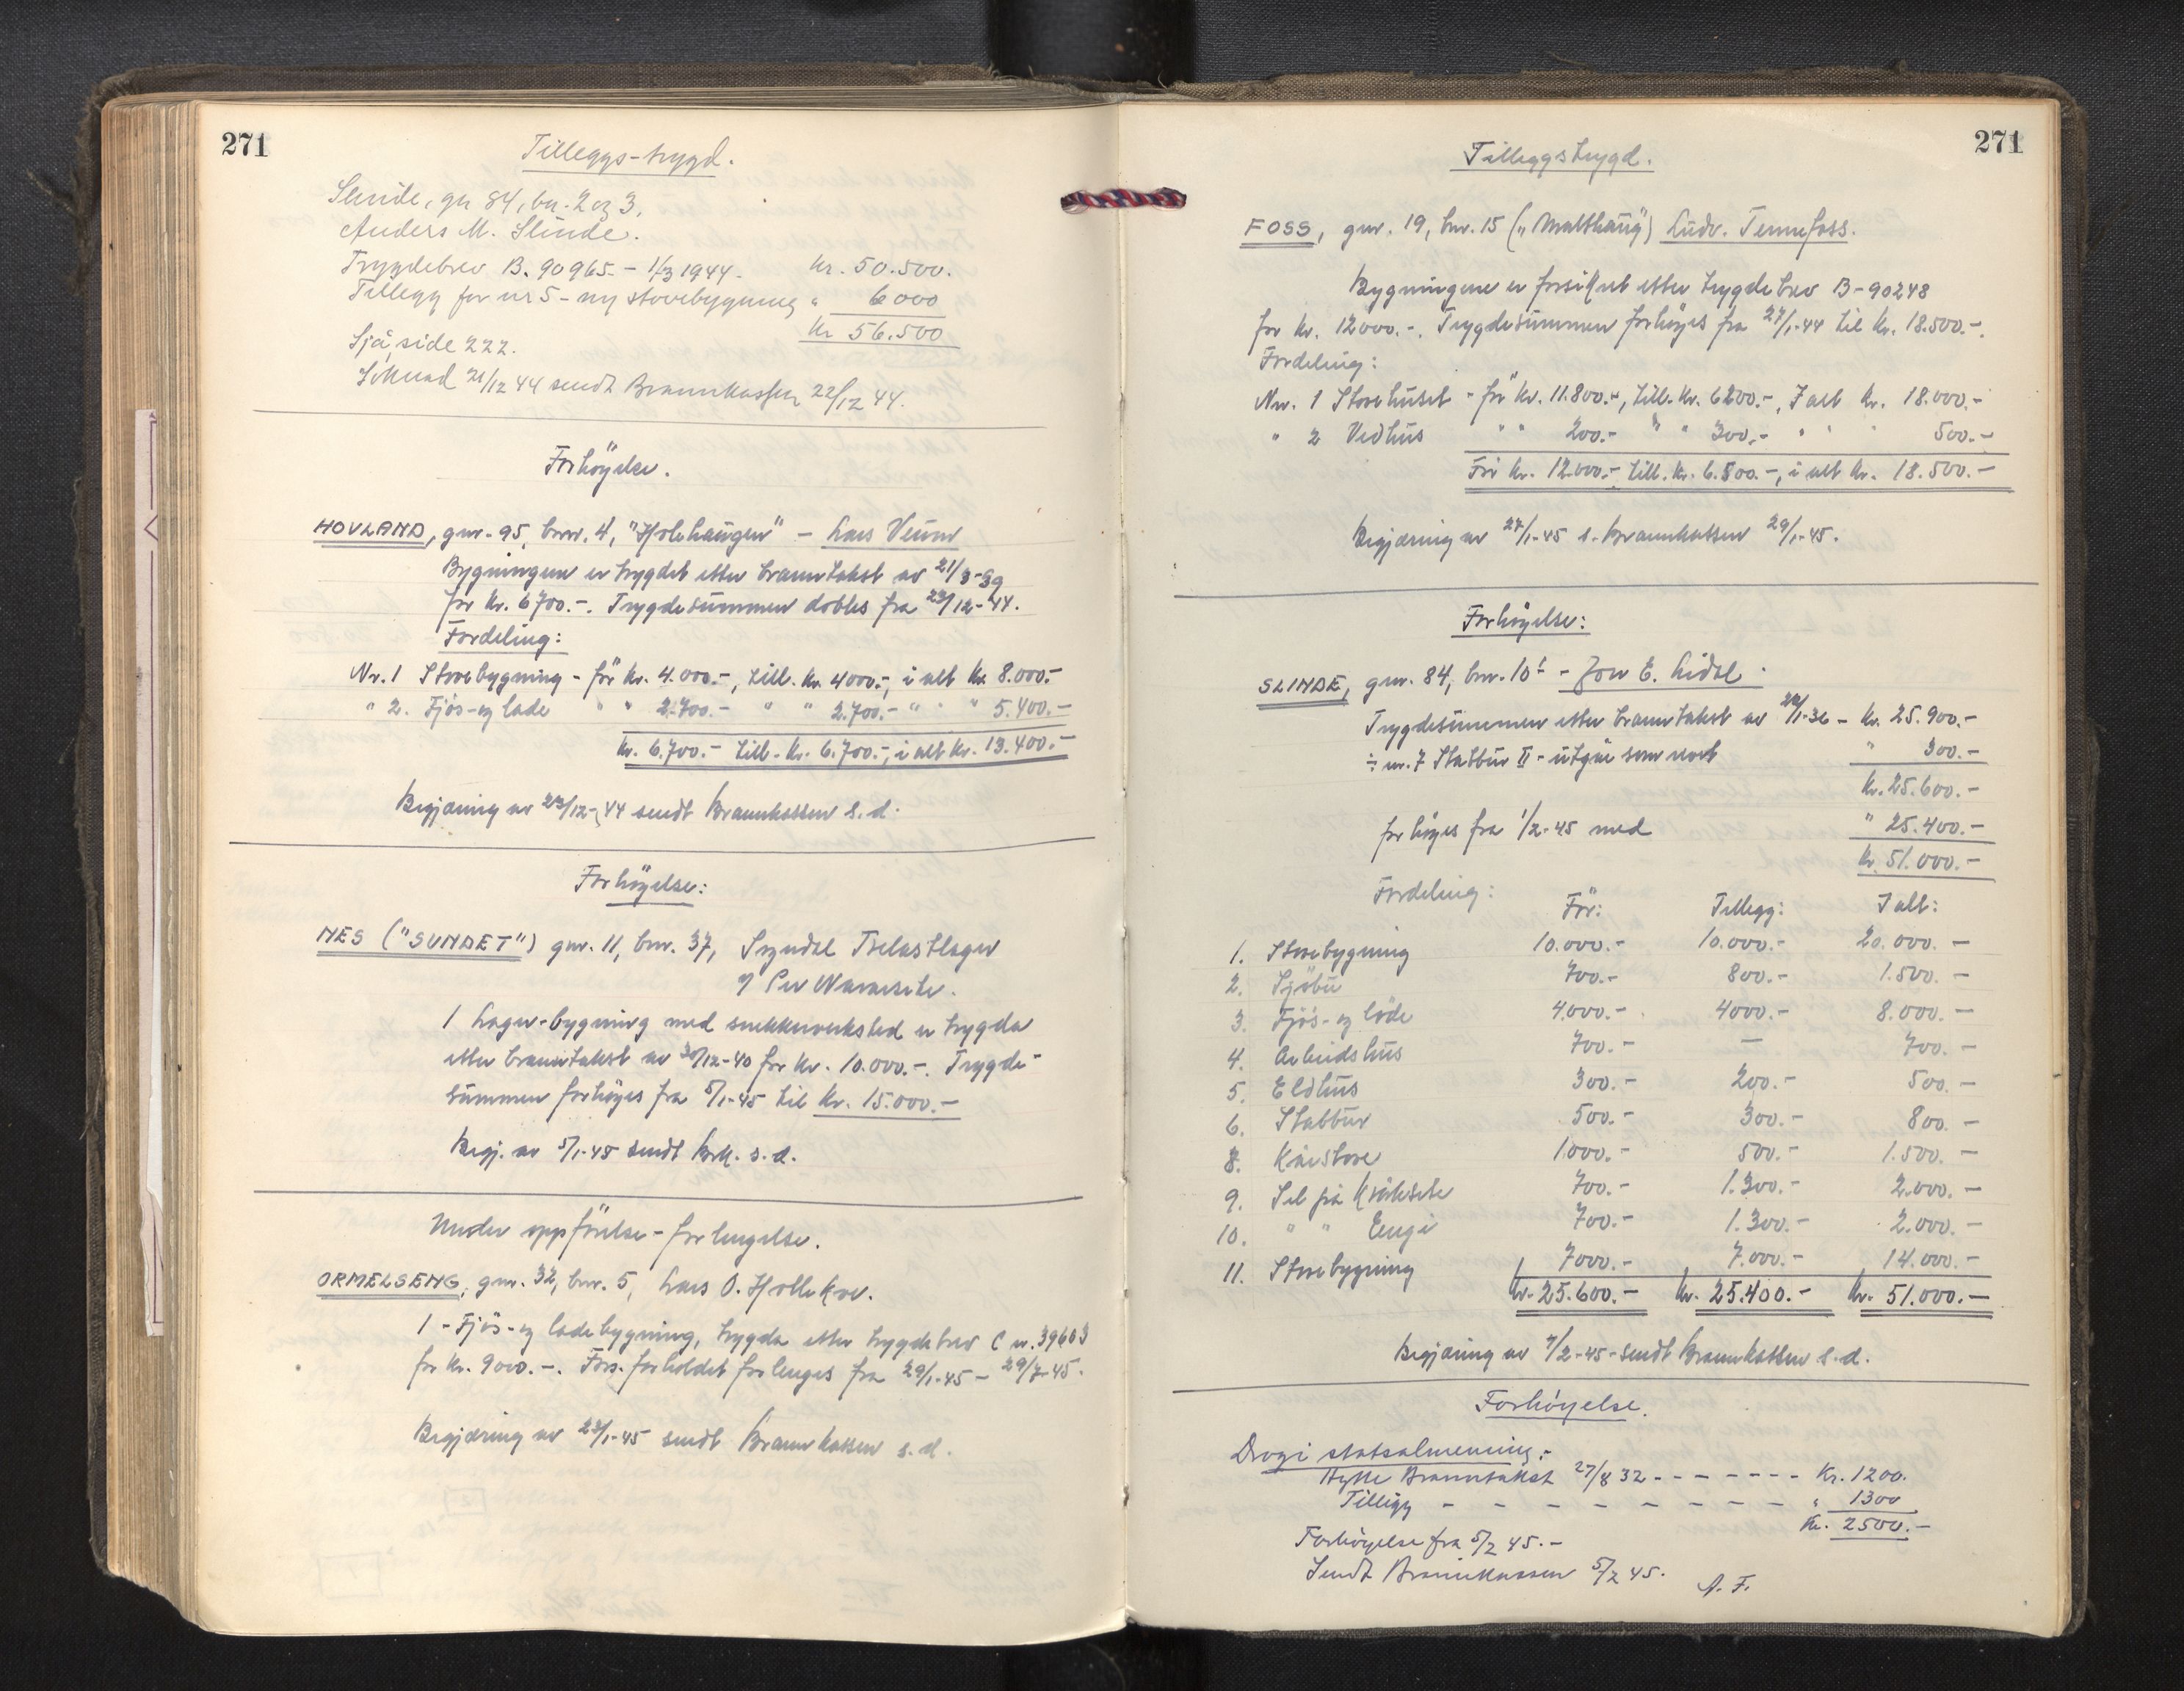 271
Tilleggs-trygd.
Slinde, gn 84, bn. 2 og 3,
Anders M. Slinde.
Trygdebrev B. 90965 - 1/3 1944. Kr. 50.500.
Tillegg for nr 5 - ny stovebygning " 6000
Kr 56.500
Sjå side 222.
Søknad 21/12 44 sendt Brannkassen 22/12 44.
Forhöyelse.
HOVLAND, gnr. 95, bnr. 4, "Holehaugen" - Lars Veum
Bygningene er trygdet etter branntakst av 21/3-39
for kr. 6700.-. Trygdesummen dobles fra 23/12-44.
Fordeling:
Nr. 1 Stovebygning - för kr. 4.000.-, till. kr. 4000.-, i alt kr. 8.000.-
" 2. Fjös- og lade " " 2.700.- " " 2.700.- " " " 5.400.-
kr. 6.700.- till. kr. 6.700.-, i alt kr. 13.400.-
Begjæring av 23/12-44 sendt Brannkassen s. d.
Forhöyelse:
NES ("SUNDET") gnr. 11, bnr. 37, Sogndal Trelastlager
v/ Per Navarsete.
1 Lager-bygning med snekkerverksted er trygda
etter branntakst av 30/12-40 for kr. 10.000.-. Trygde-
summen forhöyes fra 5/1-45 til kr. 15.000.-
Begj. av 5/1-45 sendt Brk. s. d.
Under oppförelse - forlengelse.
ORMELSENG, gnr. 32, bnr. 5, Lars O. Hollekve.
1 - Fjös- og ladebygning, trygda etter trygdebrev C nr. 39603
for kr. 9000.-. Fors. forholdet forlenges fra 29/1-45 - 29/7-45.
Begjæring av 23/1-45 sendt Brannkassen s. d.
271
Tilleggstrygd.
FOSS, gnr. 19, bnr. 15 („Malthaug") Ludv. Tennefoss.
Bygningene er forsikret etter trygdebrev B-90248
for kr. 12000.-. Trygdesummen forhöyes fra 27/1-44 til kr. 18.500.-.
Fordeling:
Nr. 1 Stovehuset - för kr. 11.800.-, till. kr. 6200.-, I alt kr. 18.000.-
" 2 Vedhus " " 200.- " " 300.- " " " 500.-
För kr. 12.000.- till. kr. 6.500.-, i alt kr. 18.500.-
Begjæring av 27/1-45 s. Brannkassen 29/1-45.
Forhöyelse:
SLINDE, gnr. 84, bnr. 10 - Jon E. Lidal.
Trygdesummen etter branntakst av 22/1-36 - kr. 25.900.-
÷ nr. 7 Stabbur II - utgår som revet " 300.-
kr. 25.600.-
forhöyes fra 1/2-45 med " 25.400.-
kr 51.000.-
Fordeling: För: Tillegg: I alt:
1. Stovebygning 10.000.- 10.000.- 20.000.-
2. Sjöbu 700.- 800.- 1.500.-
3. Fjös- og löde 4.000.- 4000.- 8.000.-
4. Arbeidshus 700.- — 700.-
5. Eldhus 300.- 200.- 500.-
6. Stabbur 500.- 300.- 800.-
8. Kårstove 1.000.- 500.- 1.500.-
9. Sel på 700.- 1.300.- 2.000.-
10. " " Engi 700.- 1.300.- 2.000.-
11. Stovebygning 7000.- 7.000.- 14.000.-
kr. 25.600.- kr. 25.400.- kr. 51.000.-
Begjæring av 1/2-45 - sendt Brannkassen s. d.
Forhøyelse.
Drøgi statsalmenning:-
Hytte Branntakst 27/8 32 - - - - - - - Kr. 1200.
Tillegg - - - - - - - - " 1300
Kr. 2500.-
Forhøyelse fra 5/2 45.-
Sendt Brannkassen 5/2 45. A. F.